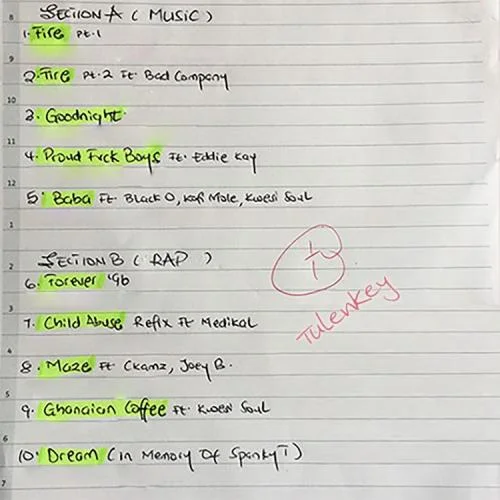 8 SECTION A ( MUSIC )
1. Fire Pt.1
9
2. Fire Pt. 2 Ft Bad Company
10
3. Goodnight
11
4. Proud Fvck Boys Ft. Eddie Kay
12
5. Baba Ft Black O, Kofi Mole, Kwesi Soul
1
2 SECTION B ( RAP )
6. Forever '96
3
7. Child Abuse Refix Ft Medikal
4
8. Maze Ft Ckamz, Joey B.
5
9. Ghanaian Coffee Ft. Kwesi Soul
6
10. Dream (In Memory Of Spanky T)
7
Tulenkey